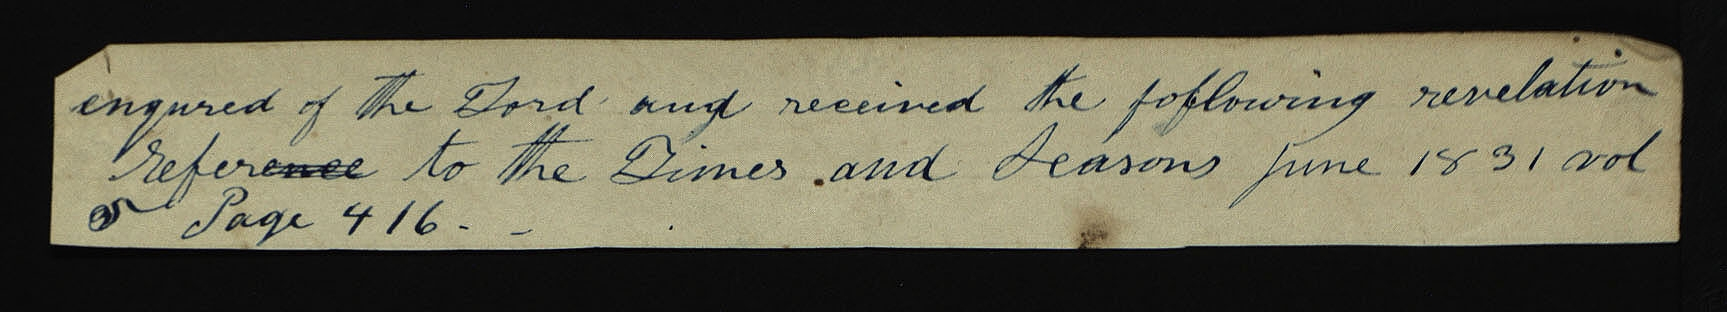 enqured of the Lord and received the following revelation
Refer<s>ence</s> to the Times and Seasons June 1831 vol
5 Page 416. -